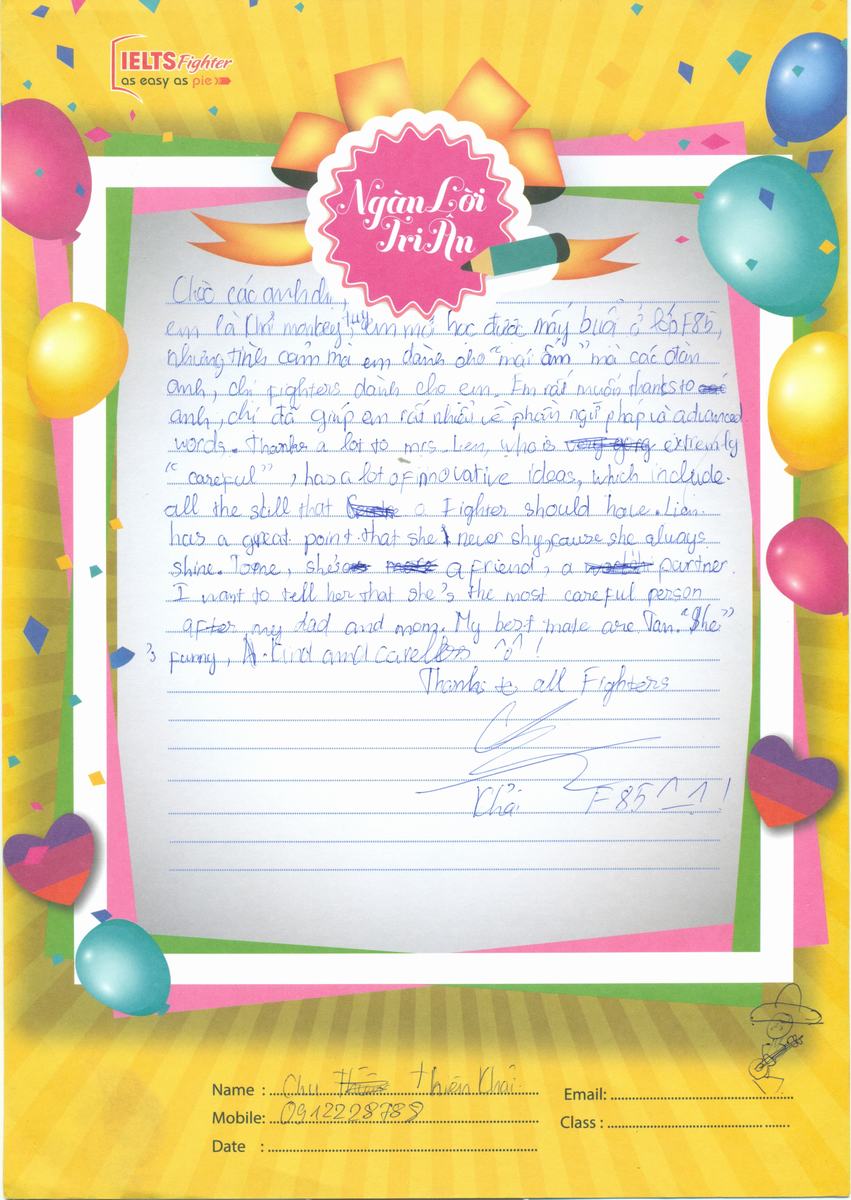 IELTS Fighter
as easy as pie
Ngàn Lời
Tri Ân
các anh chị,
em là Khỉ monkey, tuy em mới học được mấy buổi ở lớp F85,
nhưng tình cảm mà em dành cho "mái ấm" mà các đàn
anh, chị Fighters dành cho em. Em rất muốn thanks to
anh, chị đã giúp em rất nhiều về phần ngữ pháp và advanced
words. Thanks a lot to mrs. Lien, who is extremly
"careful", has a lot of innovative ideas, which include
all the skill that a Fighter should have. Lien
has a great point that she never shy, cause she always
shine. To me, she's a friend, a partner.
I want to tell her that she's the most careful person
after my dad and mom. My best mate are Tan. "She"
's funny, kind and careless ^o^ !
Thanks to all Fighters
Khải F85 ^_^ !
Name : Chu Thiên Khải
Mobile: 0912228788
Date :
Email:
Class :